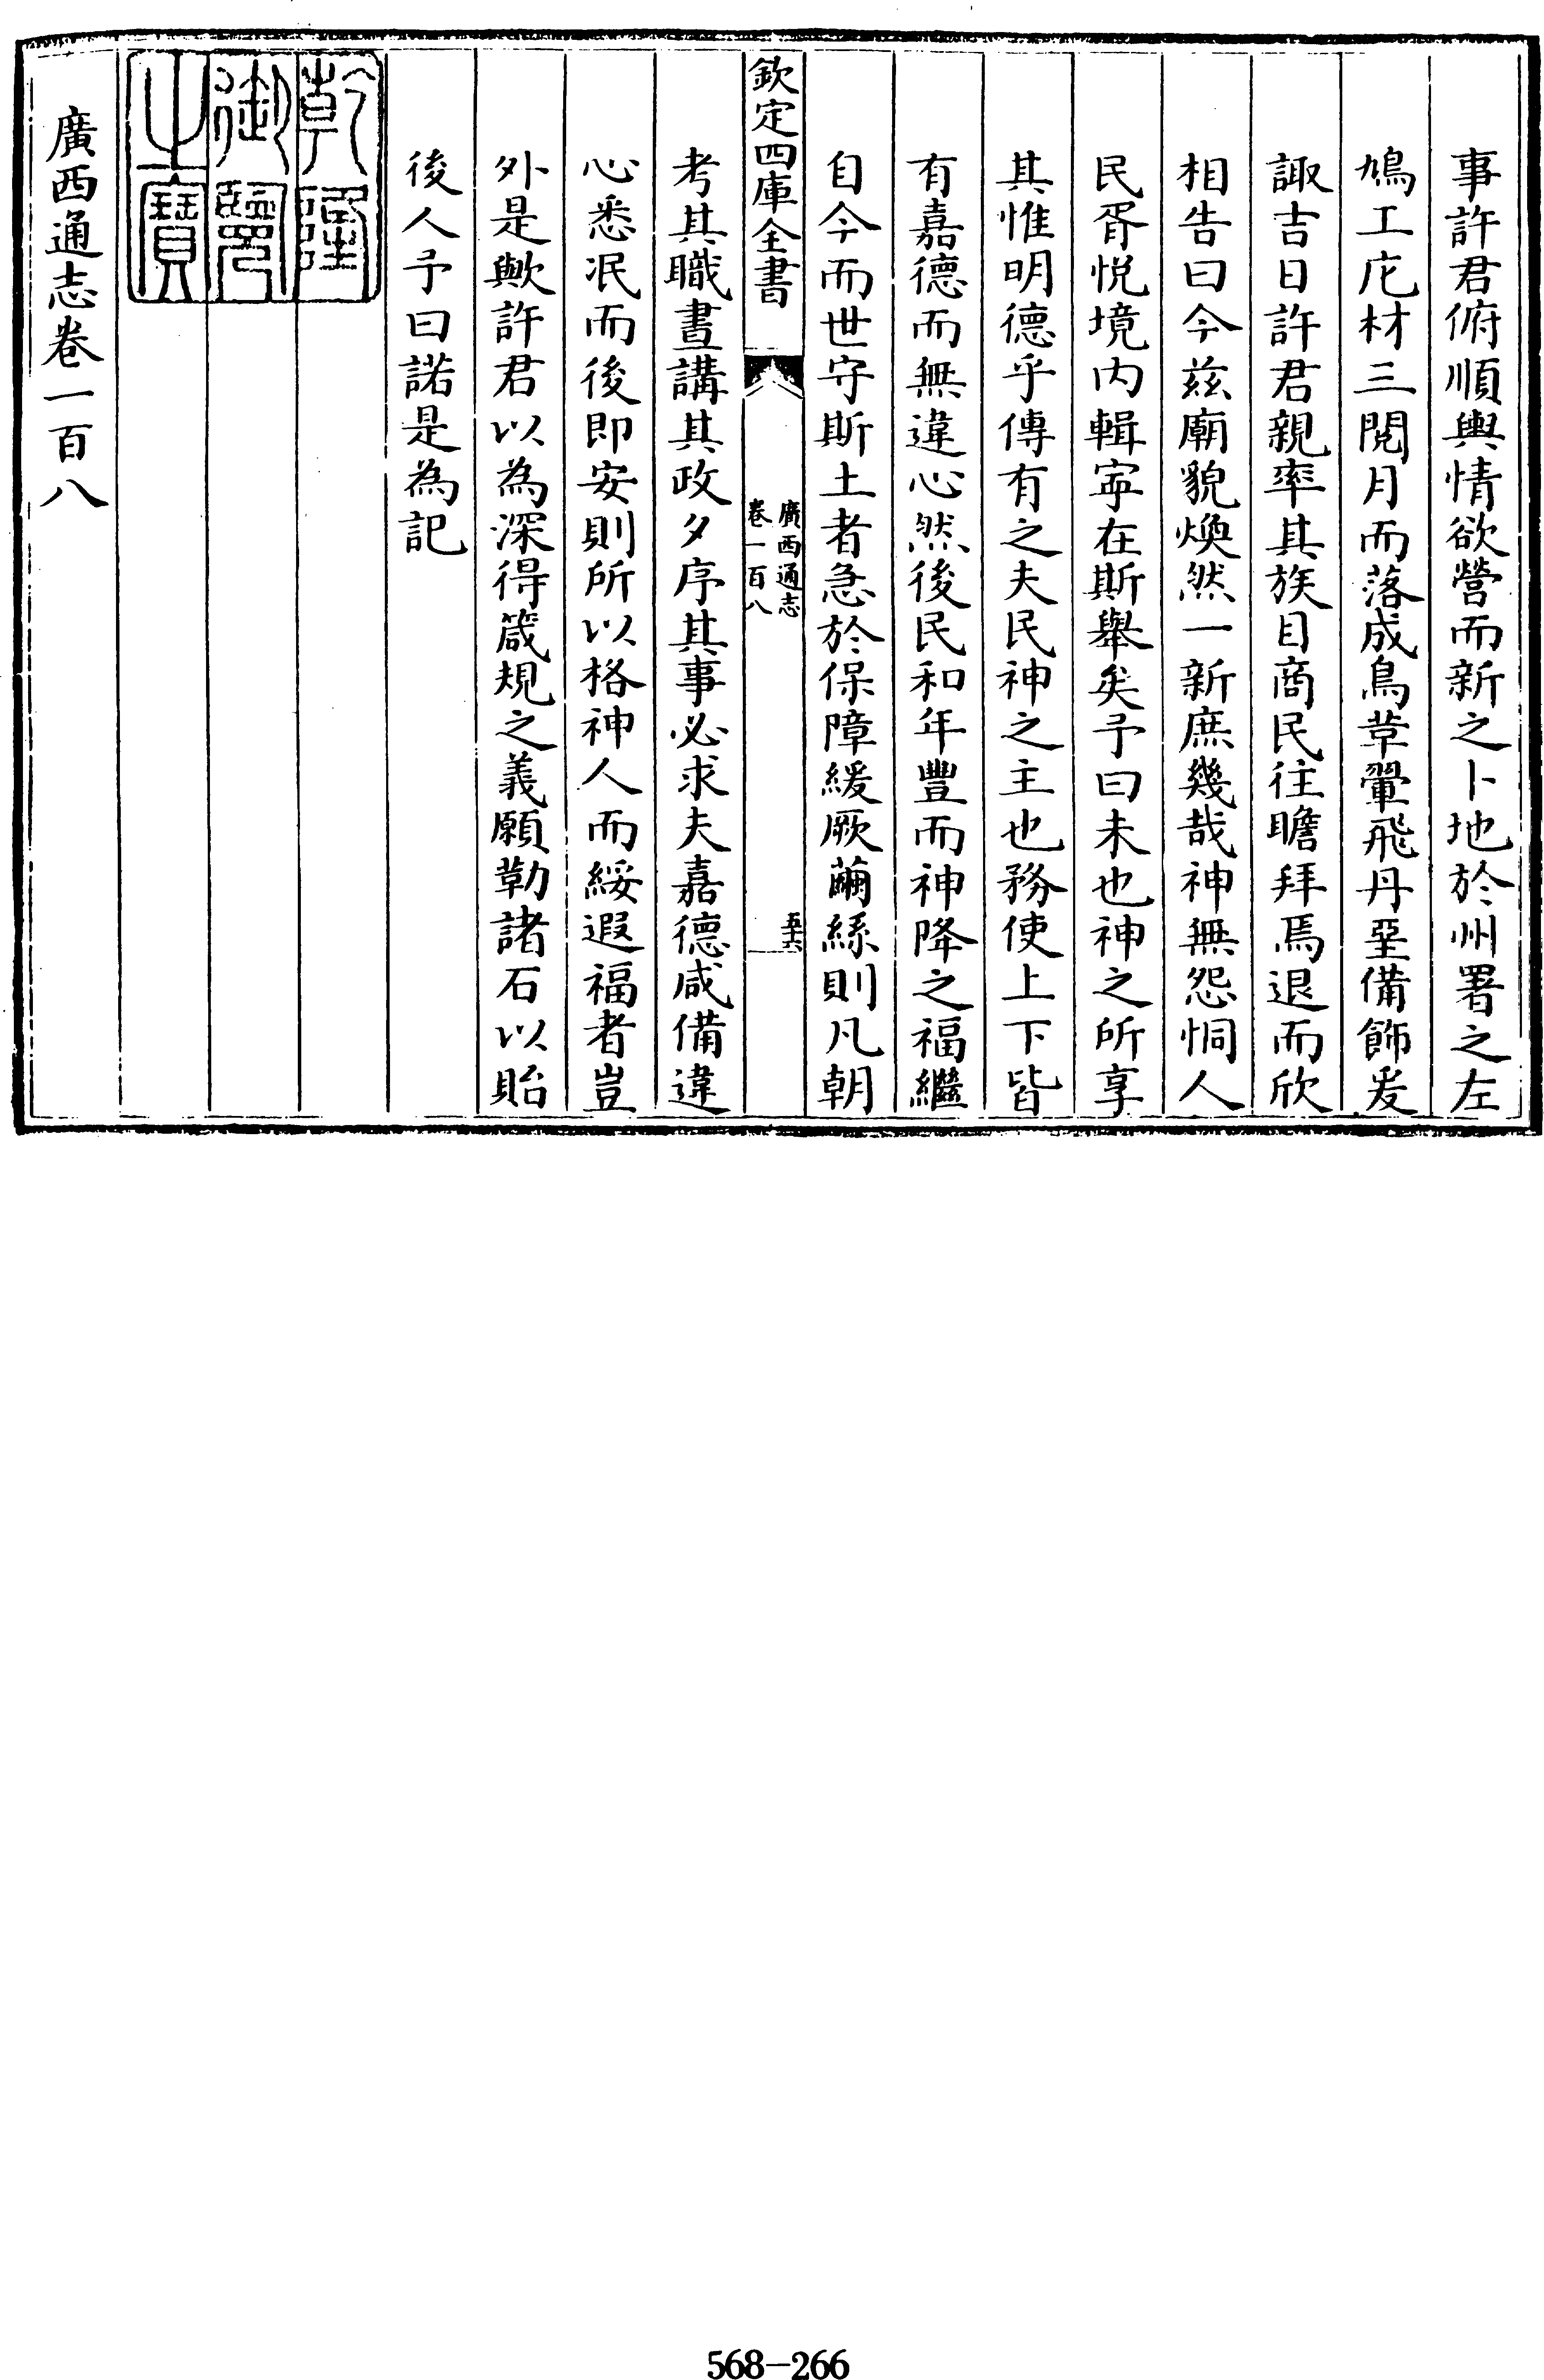 事許君俯順輿情欲營而新之卜地於州署之左
鳩工庀材三閱月而落成鳥革翬飛丹堊備飾爰
諏吉日許君親率其族目商民往瞻拜焉退而欣
相告曰今兹廟貌煥然一新庶幾哉神無怨恫人
民胥悦境内輯寧在斯舉矣予曰未也神之所享
其惟明德乎傳有之夫民神之主也務使上下皆
有嘉德而無違心然後民和年豐而神降之福繼
自今而世守斯土者急於保障緩厥繭絲則凡朝
欽定四庫全書
廣西通志
卷一百八
五十六
考其職晝講其政夕序其事必求夫嘉德咸備違
心悉泯而後即安則所以格神人而綏遐福者豈
外是歟許君以為深得箴規之義願勒諸石以貽
後人予曰諾是為記
乾隆
御覽
之寶
廣西通志卷一百八
568-266